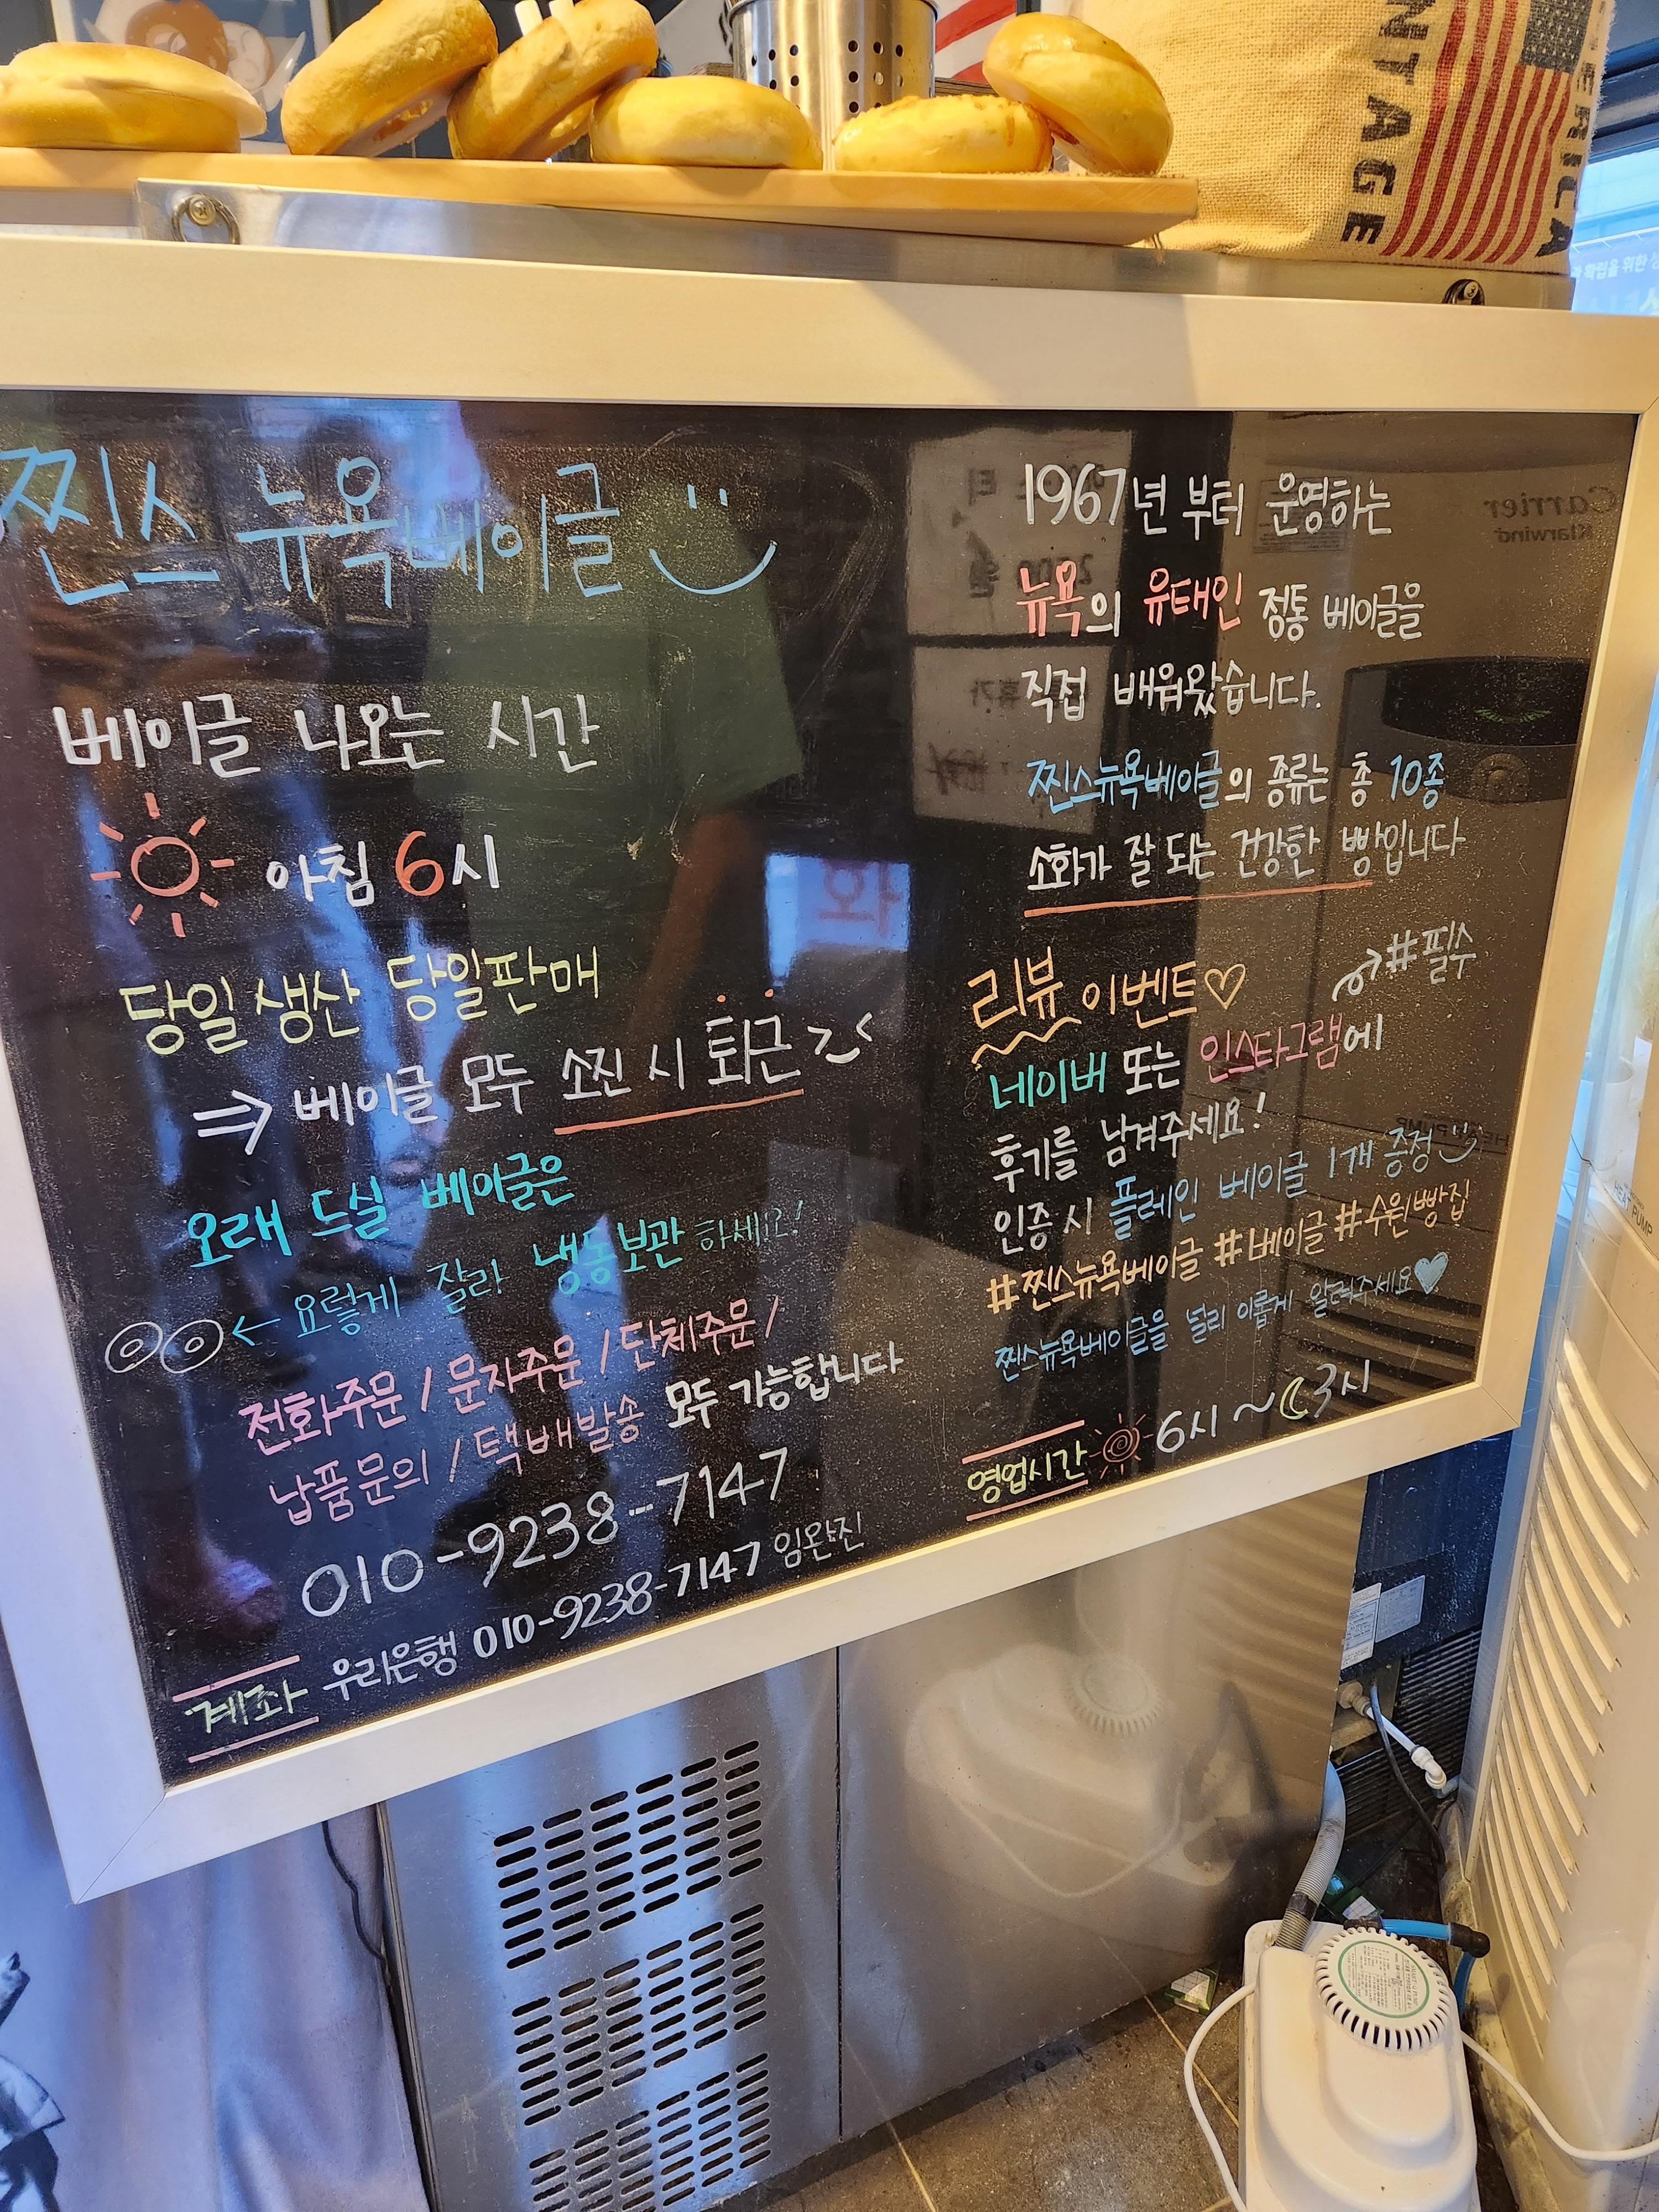 NTAGE
ERICA
확립을 위한
찐스 뉴욕베이글
베이글 나오는 시간
아침 6시
당일 생산 당일판매
⇒ 베이글 모두 소진 시 퇴근
오래 드실 베이글은
← 요렇게 잘라 냉동보관 하세요!
전화주문 / 문자주문 / 단체주문 /
납품문의 / 택배발송 모두 가능합니다
010-9238-7147
계좌 우리은행 010-9238-7147 임완진
1967년 부터 운영하는
뉴욕의 유태인 정통 베이글을
직접 배워왔습니다.
찐스뉴욕베이글의 종류는 총 10종
소화가 잘 되는 건강한 빵입니다
리뷰 이벤트♡ #필수
네이버 또는 인스타그램에
후기를 남겨주세요!
인증 시 플레인 베이글 1개 증정
#찐스뉴욕베이글 #베이글 #수원빵집
찐스뉴욕베이글을 널리 이롭게 알려주세요♥
영업시간 6시 ~ 3시
Carrier
Klarwind
HEAT PUMP